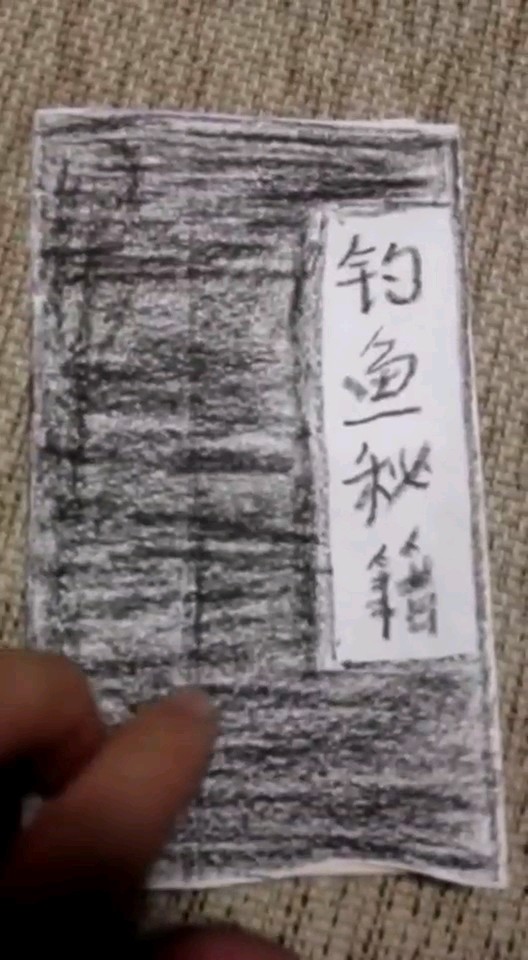 钓鱼秘籍